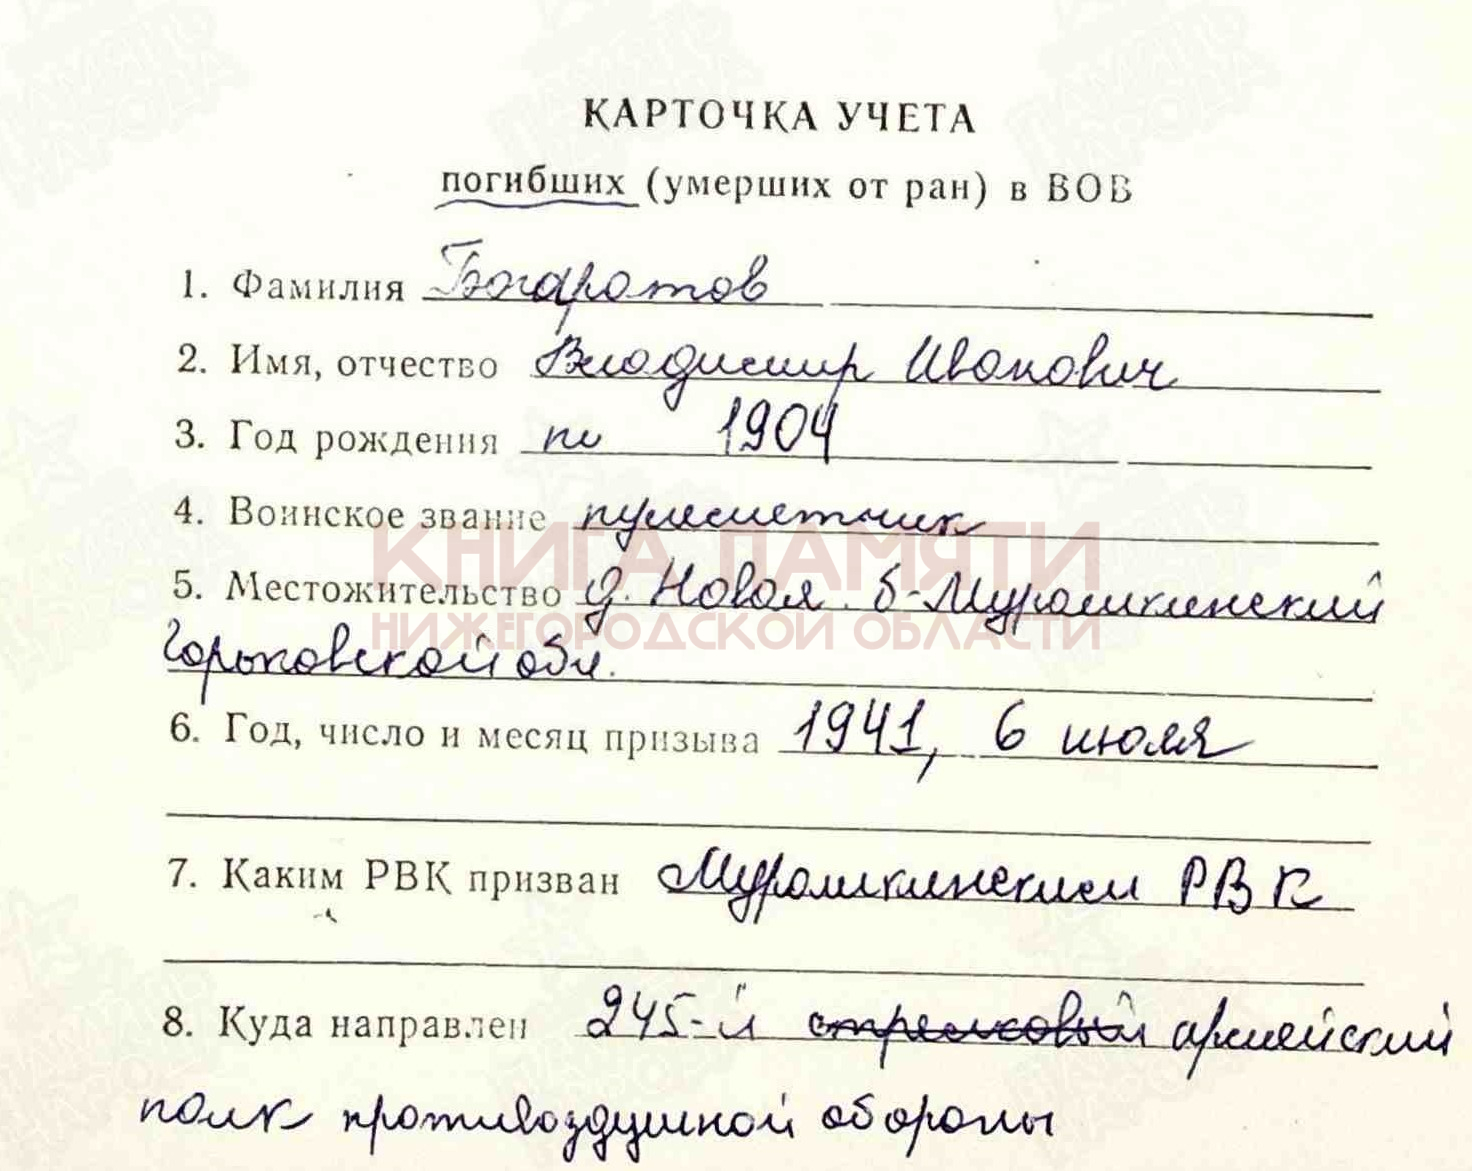 КАРТОЧКА УЧЕТА
погибших (умерших от ран) в ВОВ
1. Фамилия Богаротов
2. Имя, отчество Владимир Иванович
3. Год рождения 1904
4. Воинское звание пулеметчик
КНИГА ПАМЯТИ
5. Местожительство д. Новая. Б-Мурашкинский
НИЖЕГОРОДСКОЙ ОБЛАСТИ
Горьковской обл.
6. Год, число и месяц призыва 1941, 6 июля
7. Каким РВК призван Мурашкинским РВК
8. Куда направлен 245-й стрелковый армейский
полк противоздушной обороны